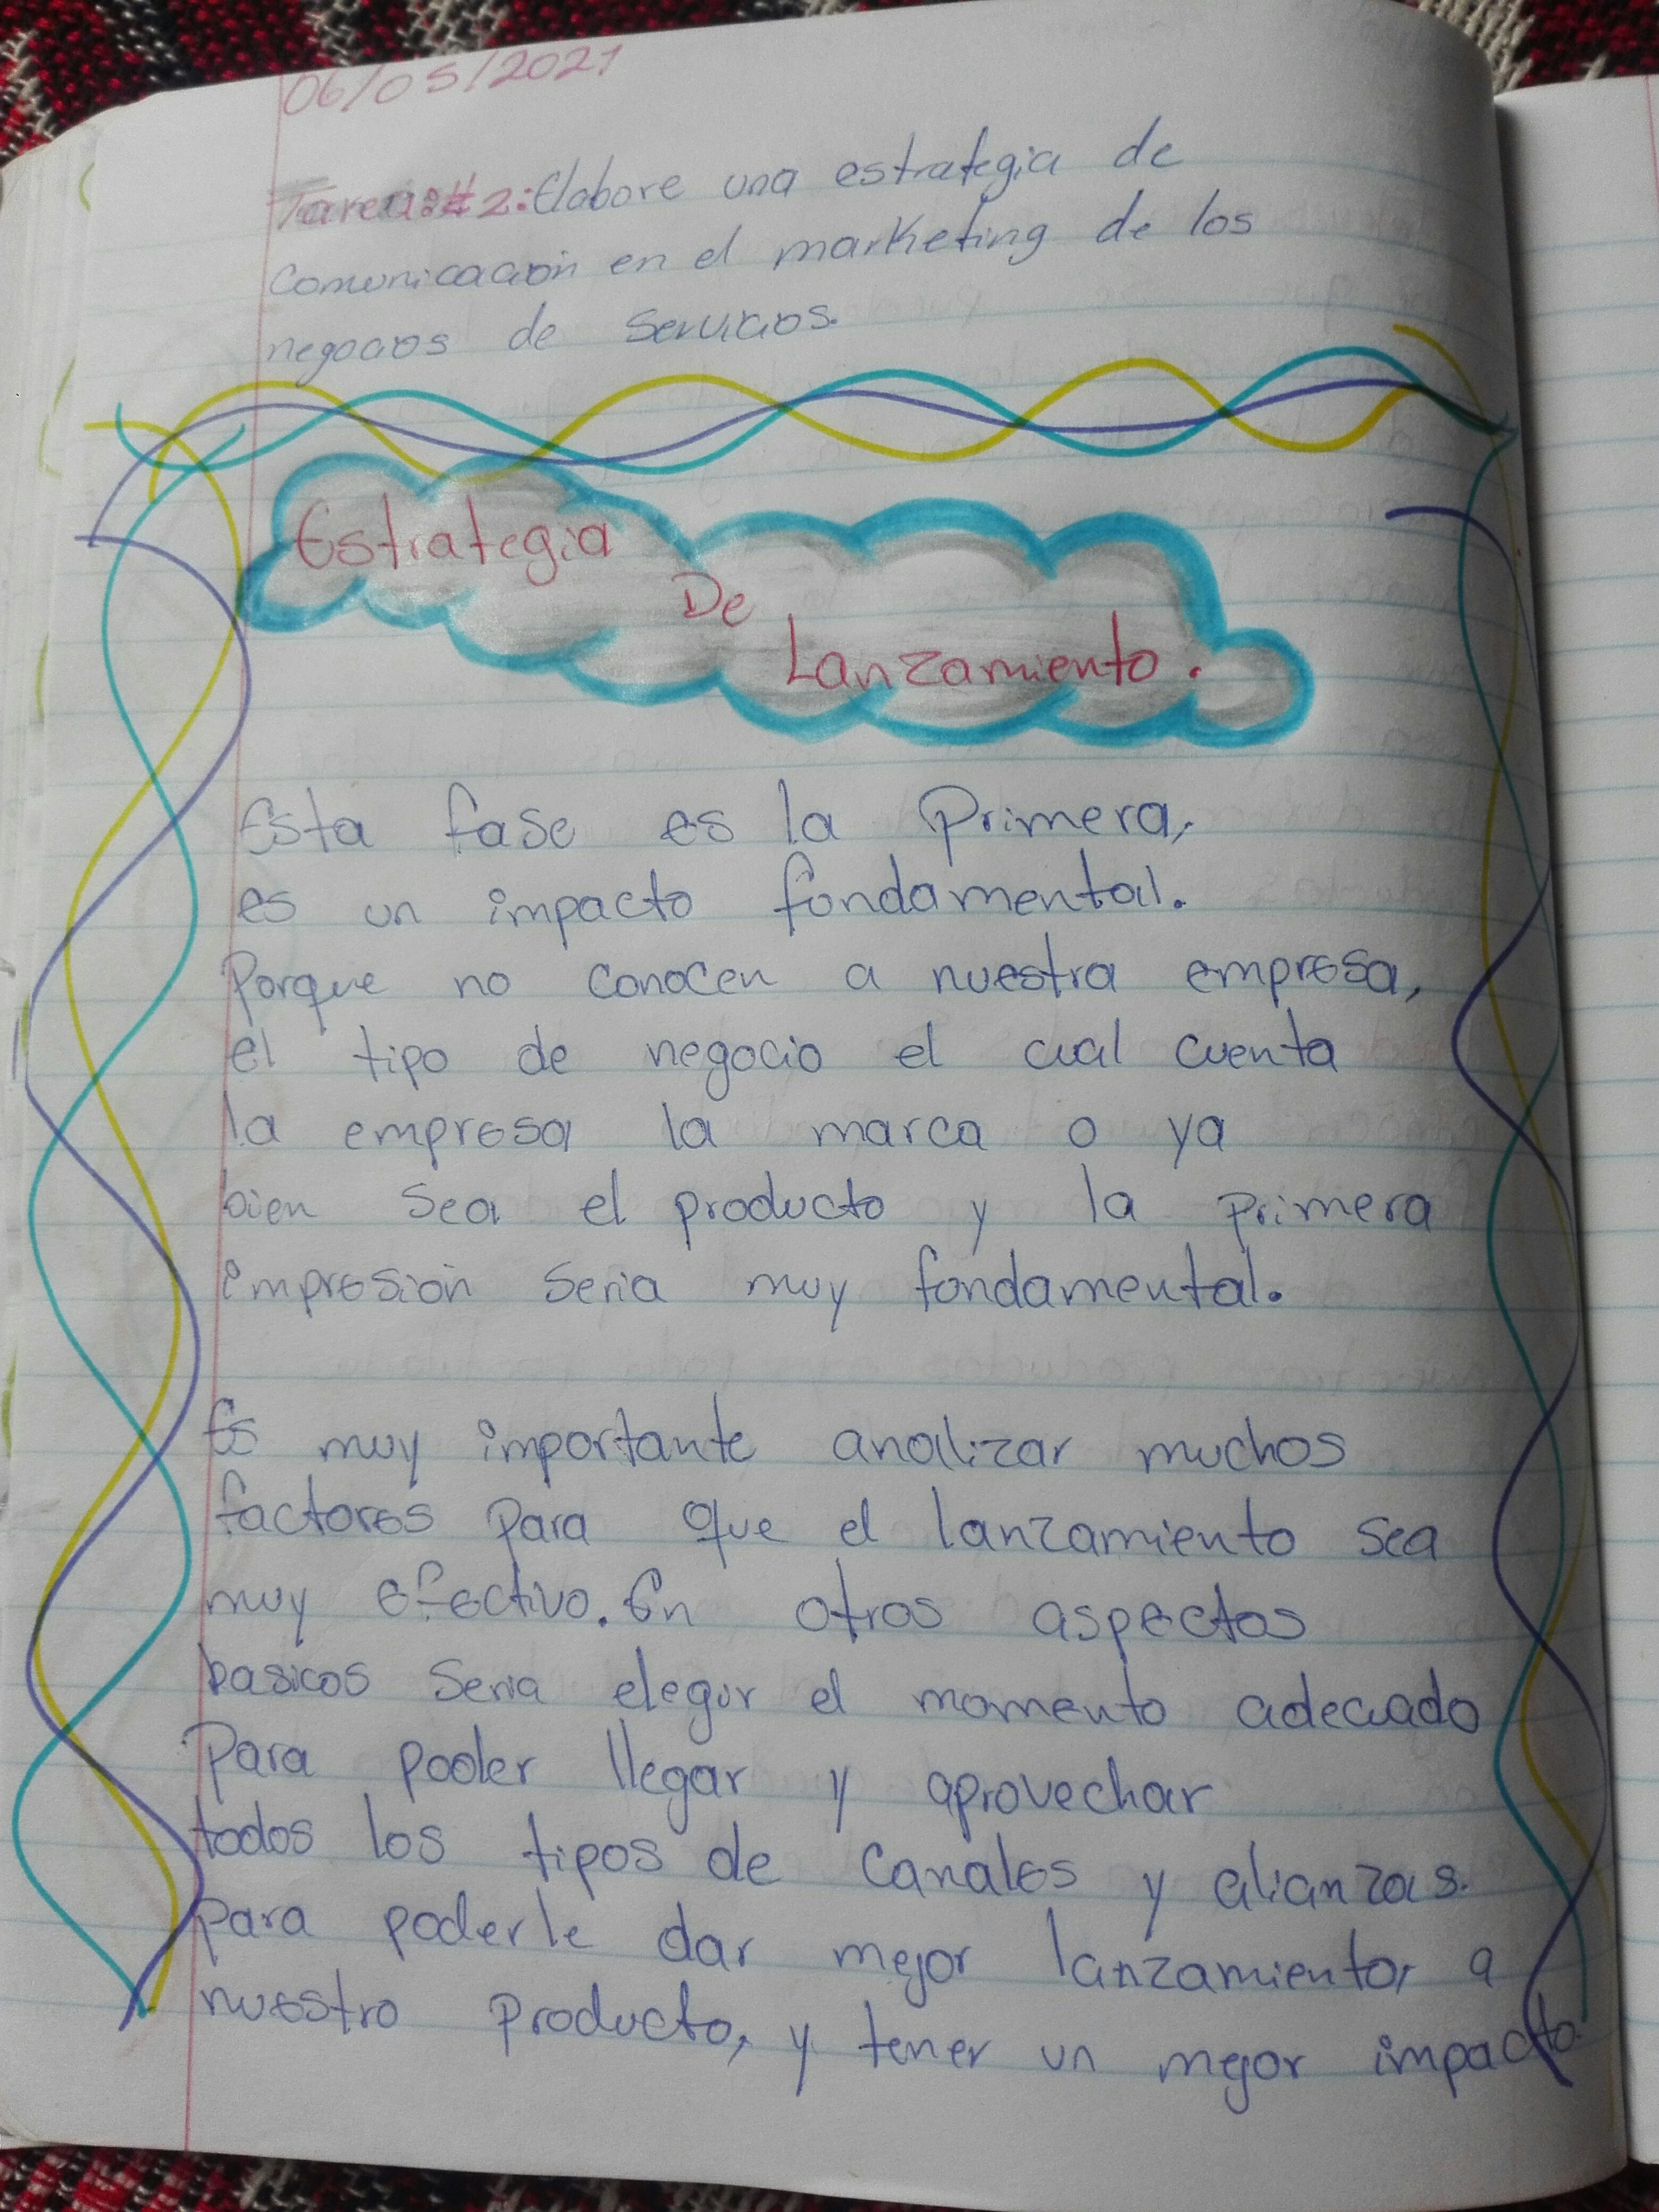 06/05/2021
Tarea:#2: Elabore una estrategia de
comunicación en el marketing de los
negocios de servicios.
Estrategia
De
Lanzamiento.
Esta fase es la Primera,
es un impacto fondamental.
Porque no conocen a nuestra empresa,
el tipo de negocio el cual cuenta
la empresa la marca o ya
bien sea el producto y la primera
impresión seria muy fondamental.
Es muy importante analizar muchos
factores para que el lanzamiento sea
muy efectivo. En otros aspectos
basicos seria elegir el momento adecuado
Para poder llegar y aprovechar
todos los tipos de canales y alianzas.
para poderle dar mejor lanzamiento, a
nuestro producto, y tener un mejor impacto.